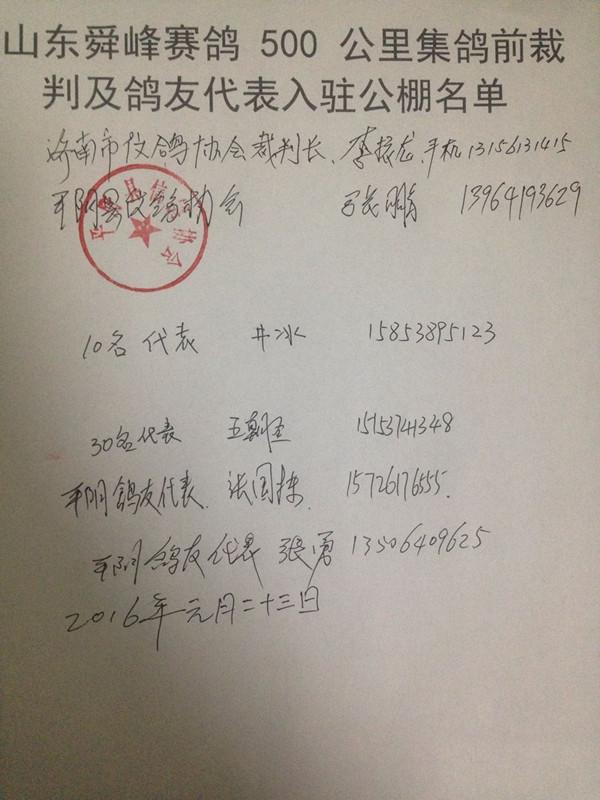 山东舜峰赛鸽 500 公里集鸽前裁
判及鸽友代表入驻公棚名单
济南市信鸽协会裁判长、李振龙、手机13156131415
平阴县信鸽协会 张鹏 13964193629
10名代表 井冰 15853895123
30名代表 王 15153741348
平阴鸽友代表、法国栋、15726176555.
平阴鸽友代表 张勇 13506409625
2016年元月二十三日